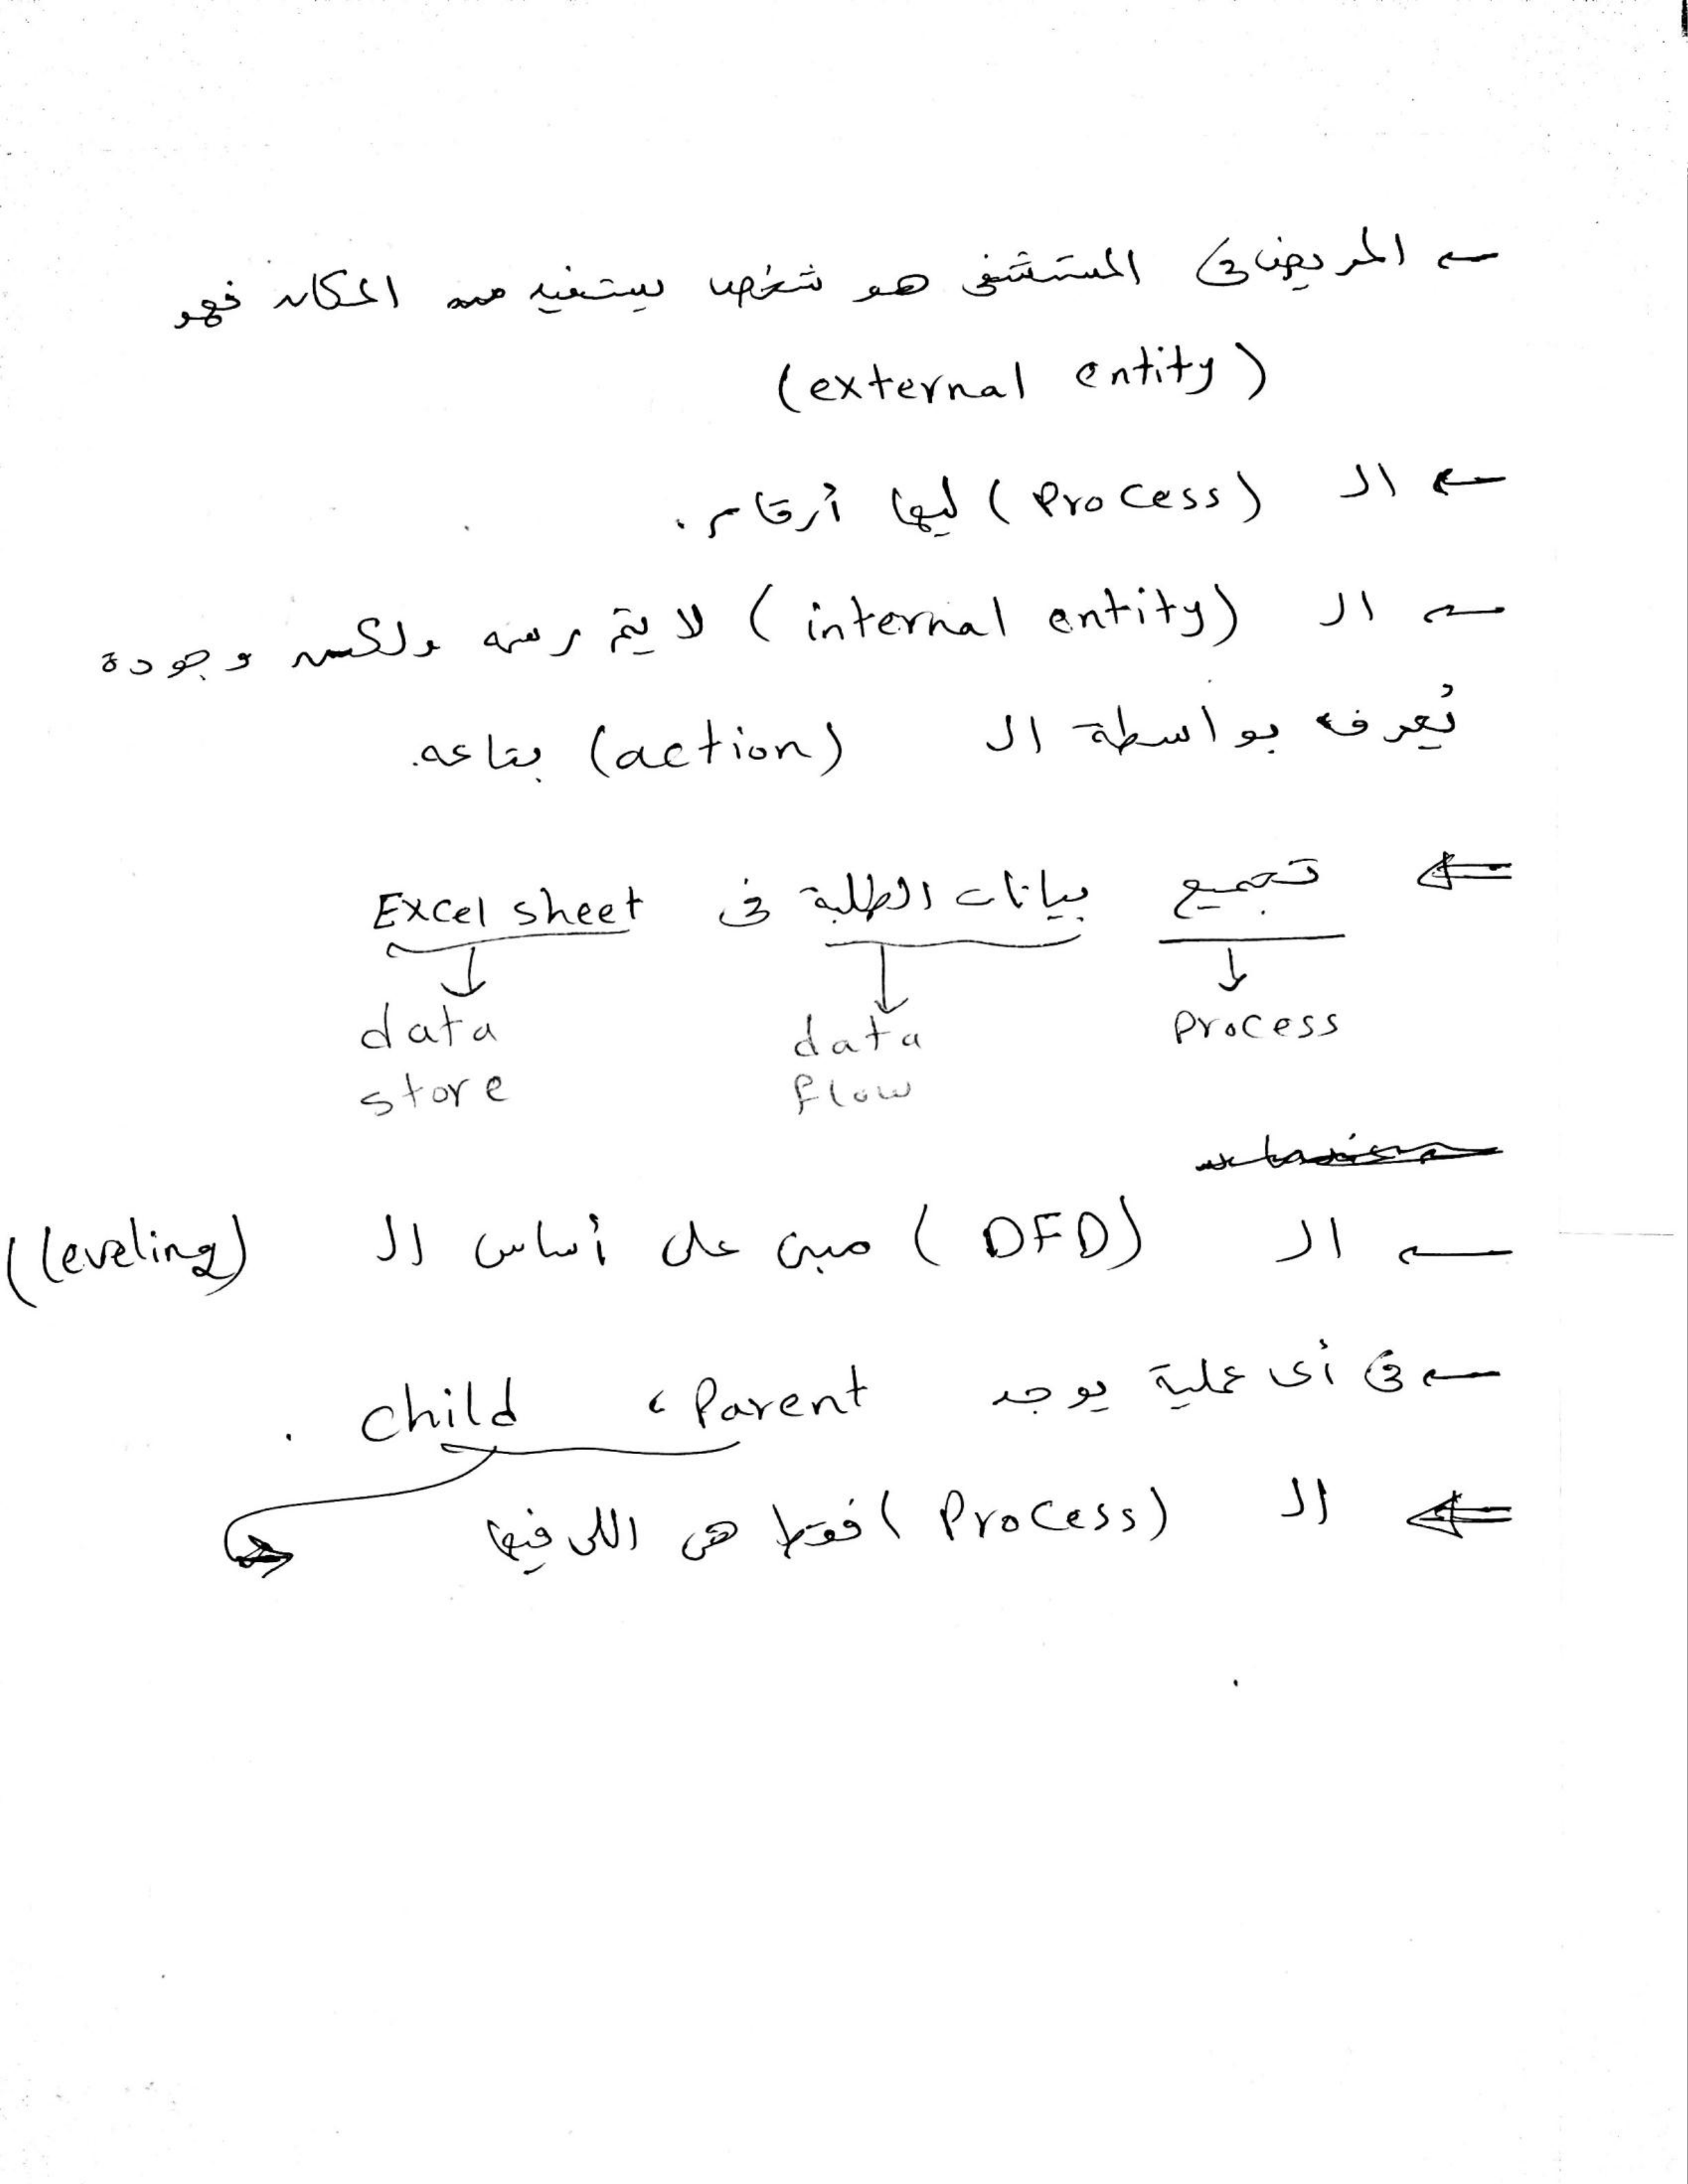 ← المريض فى المستشفى هو شخص يستفيد من المكان فهو
(external entity)
← الـ (Process) ليها أرقام.
← الـ (internal entity) لا يتم رسمه ولكن وجوده
يُعرف بواسطة الـ (action) بتاعه.
⇐ تجميع بيانات الطلبة فى Excel sheet
Process data flow data store
← الـ (DFD) مبنى على أساس الـ (leveling)
← فى أى عملية يوجد Parent ، child .
⇐ الـ (Process) فقط هى اللى فيها